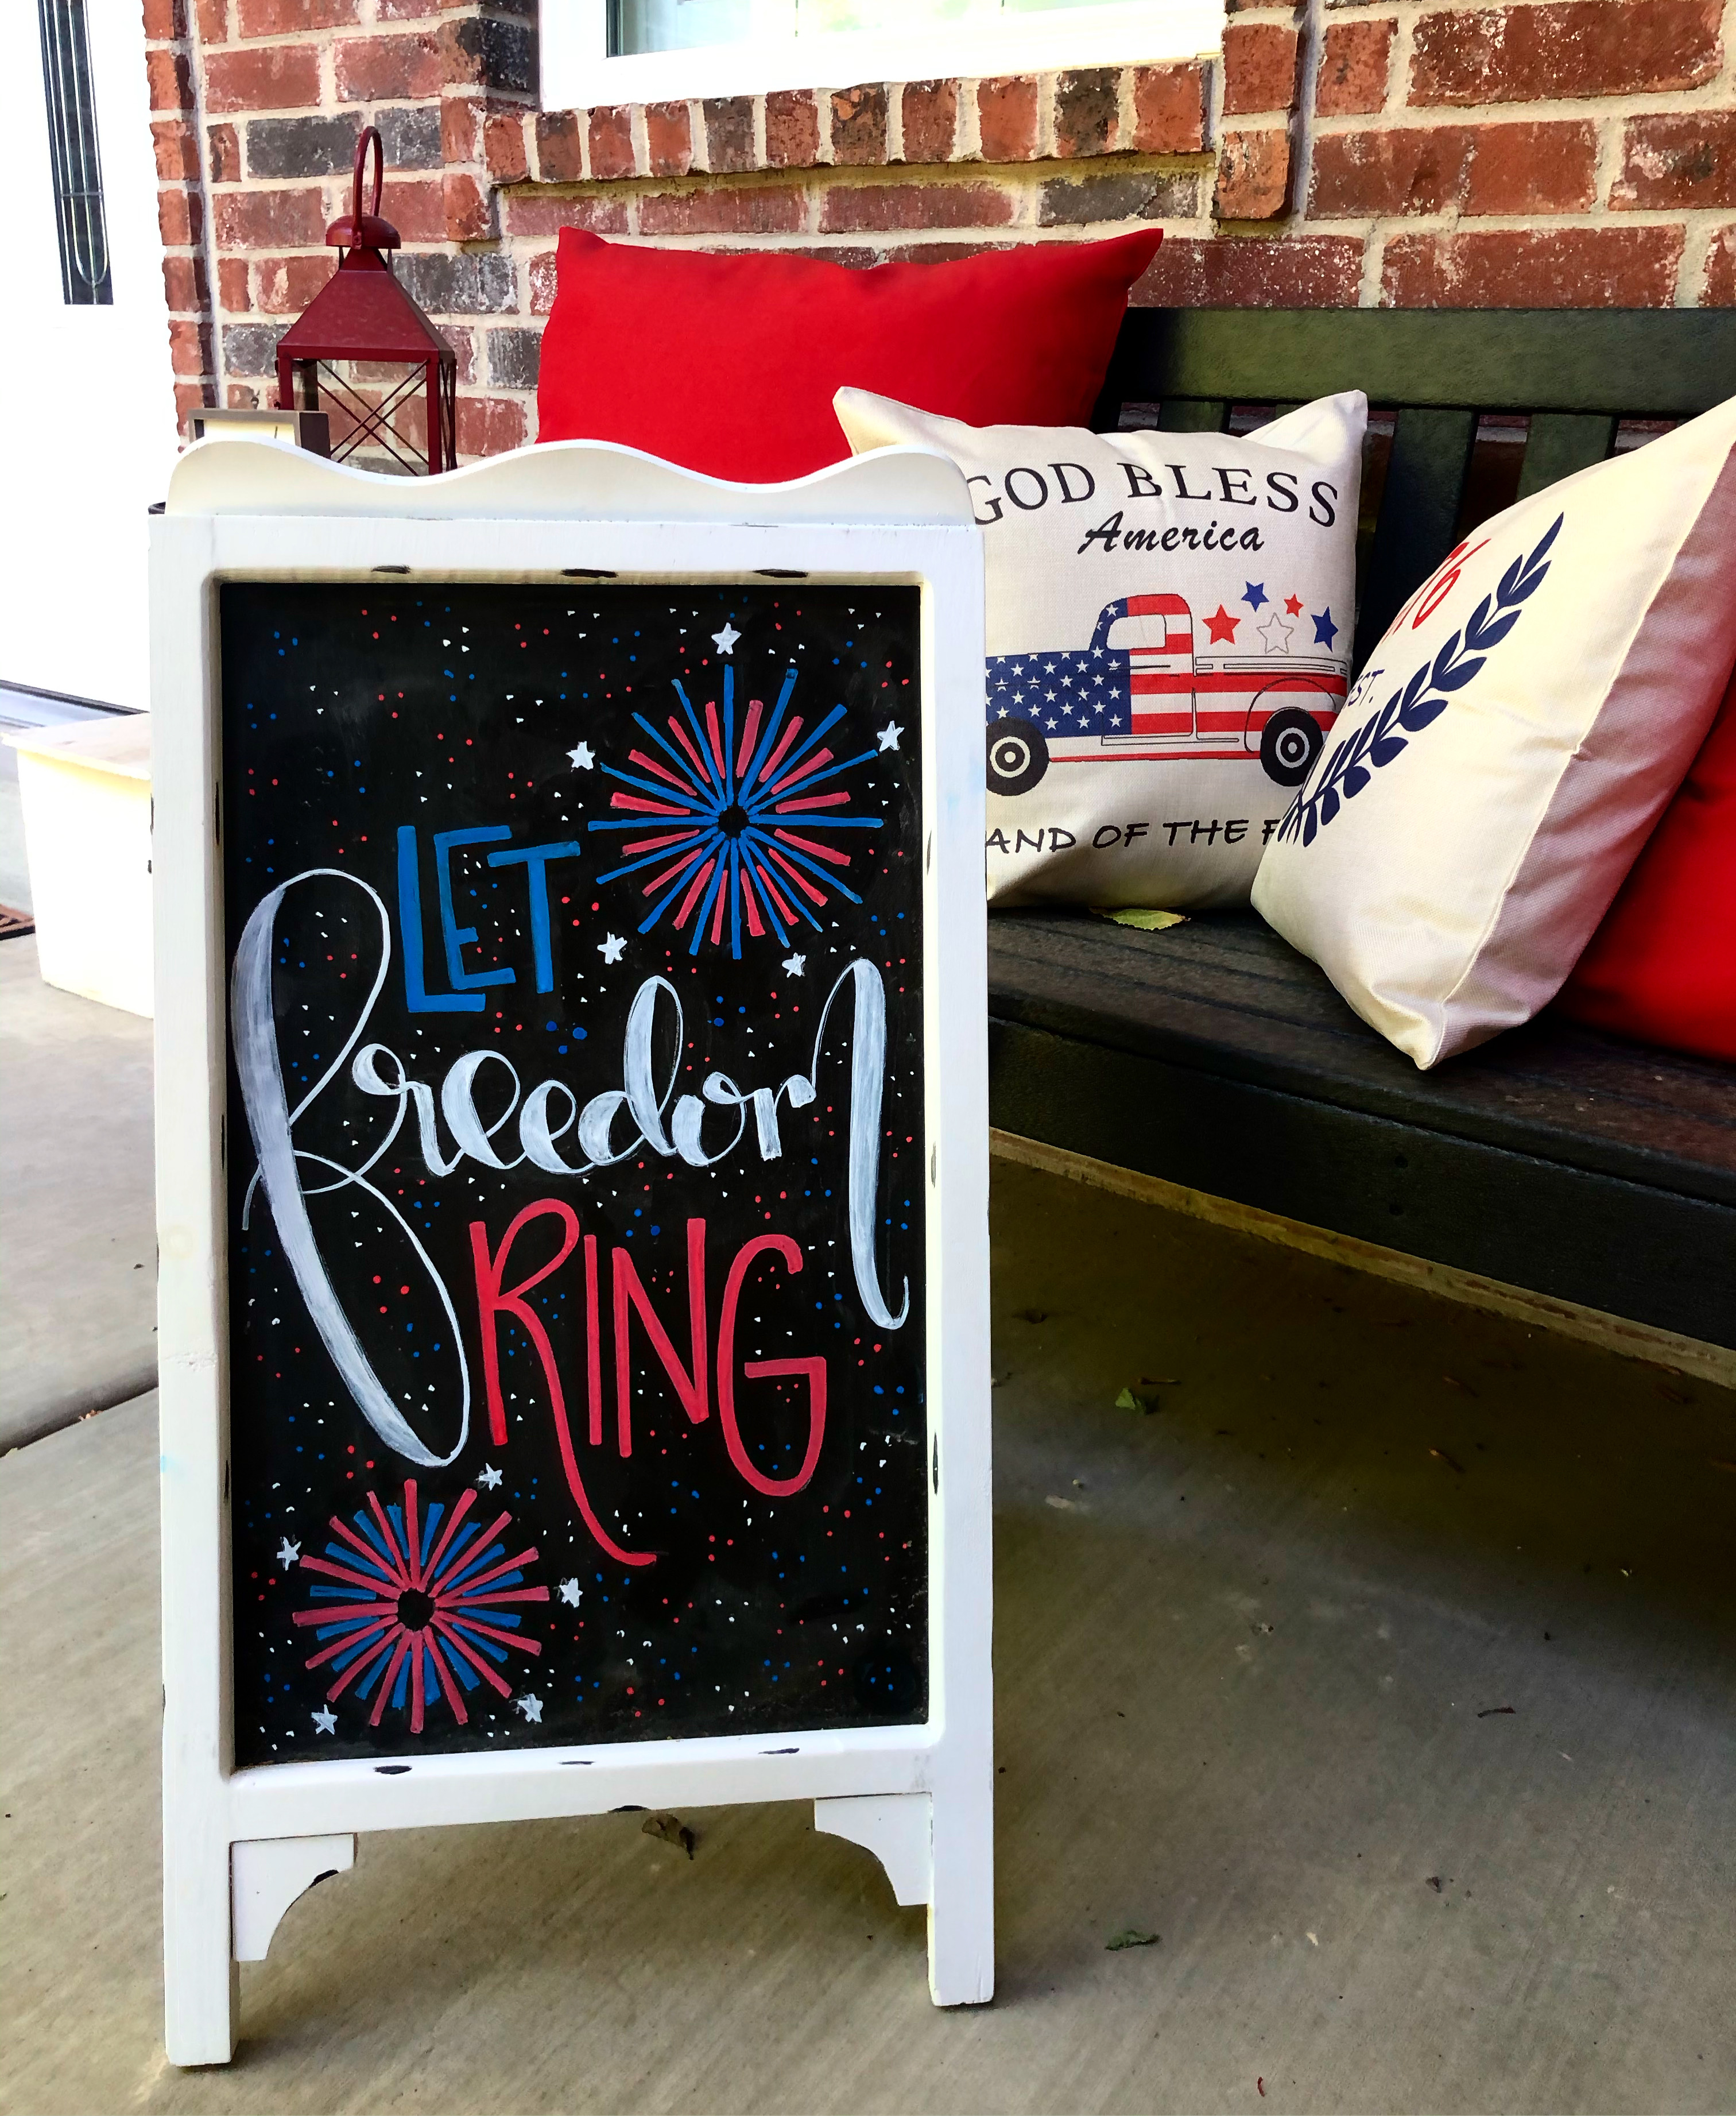 LET
freedom
RING
GOD BLESS
America
AND OF THE
76
EST.